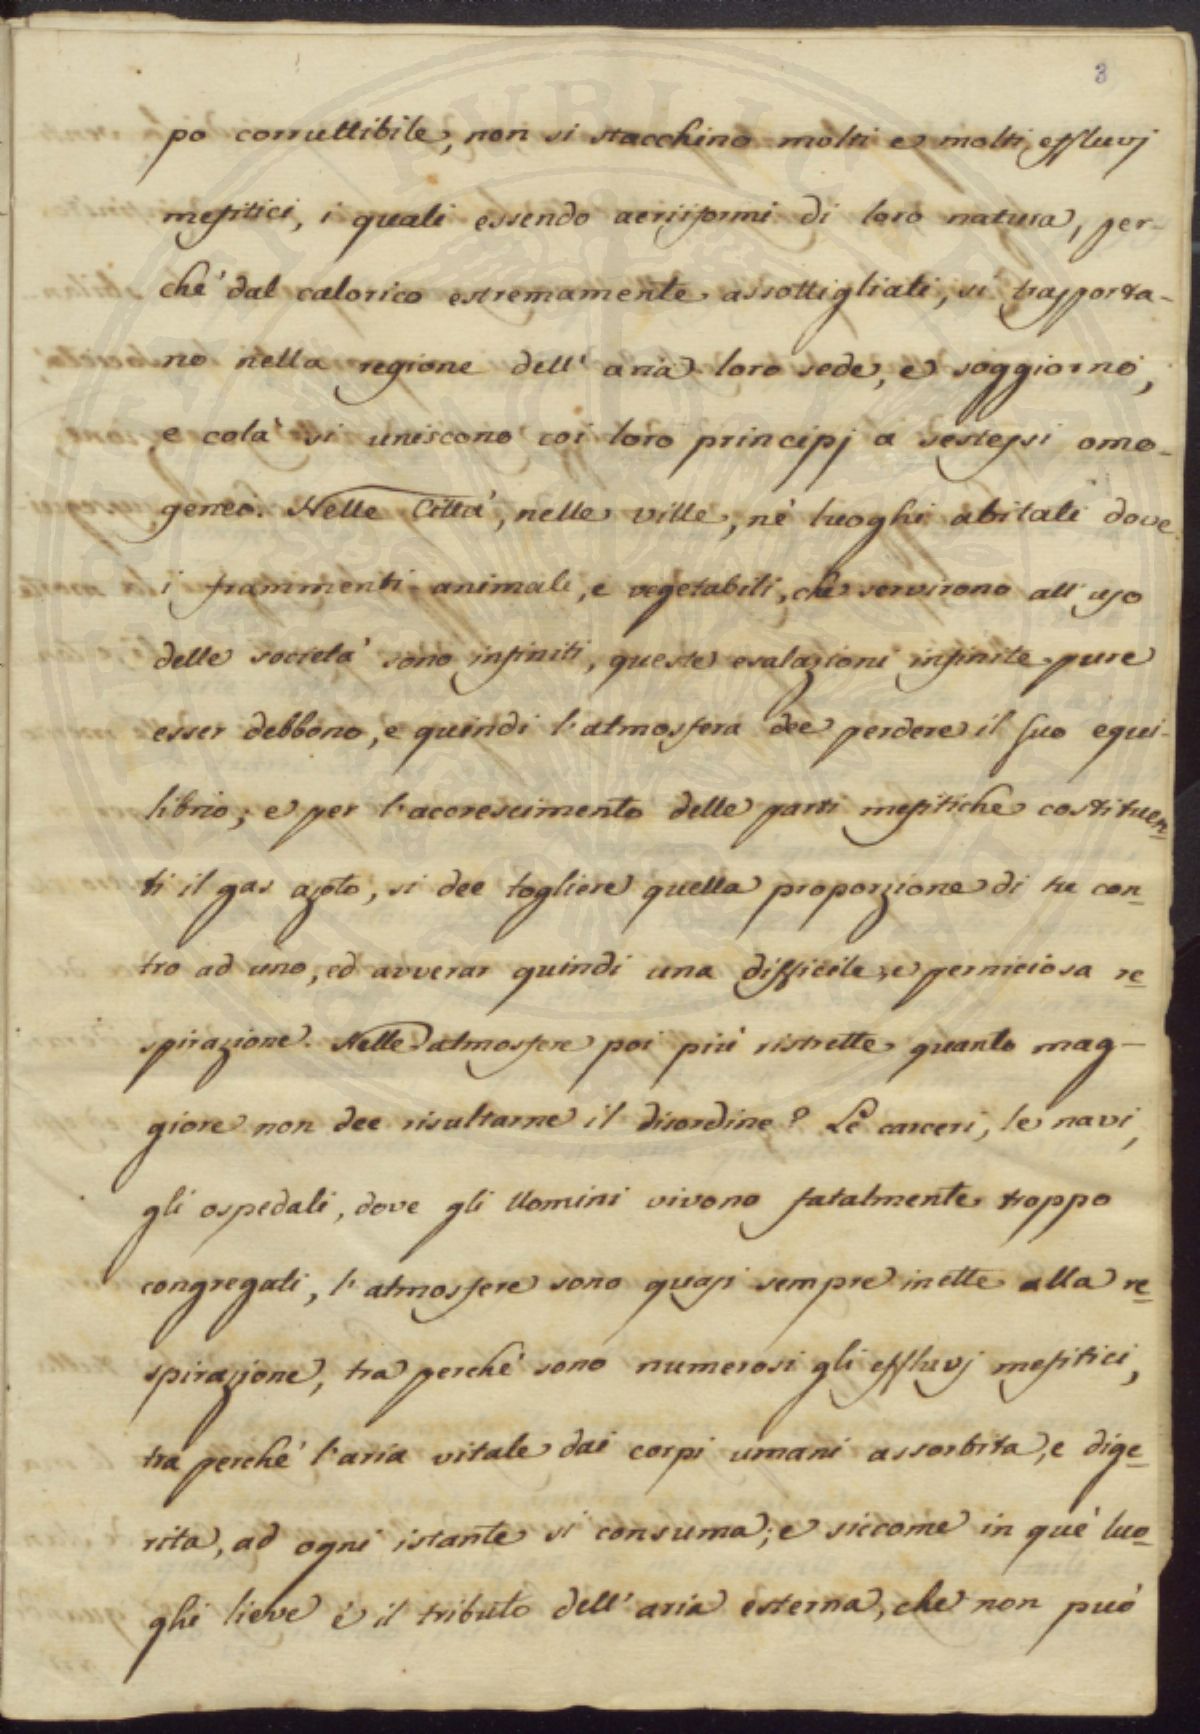 3
po corruttibile, non si stacchino molti e molti effluvj
mefitici, i quali essendo aeriiformi di loro natura, per-
chè dal calorico estremamente assottigliati, si trasporta-
no nella regione dell' aria loro sede, e soggiorno,
e colà si uniscono coi loro principj a sestessi omo-
genei. Nelle Città, nelle ville, nè luoghi abitati dove
i frammenti animali, e vegetabili, che servirono all' uso
delle società sono infiniti, queste esalazioni infinite pure
esser debbono, e quindi l'atmosfera dee perdere il suo equi-
librio; e per l'accrescimento delle parti mefitiche costituen-
ti il gas azoto, si dee togliere quella proporzione di tre con-
tro ad uno, ed avverar quindi una difficile, e perniciosa re-
spirazione. Nelle atmosfere poi più ristrette quanto mag-
giore non dee risultarne il disordine? Le carceri, le navi,
gli ospedali, dove gli Uomini vivono fatalmente troppo
congregati, l'atmosfere sono quasi sempre inette alla re-
spirazione, tra perchè sono numerosi gli effluvj mefitici,
tra perchè l'aria vitale dai corpi umani assorbita, e dige-
rita, ad ogni istante si consuma; e siccome in què luo-
ghi lieve è il tributo dell' aria esterna, che non può